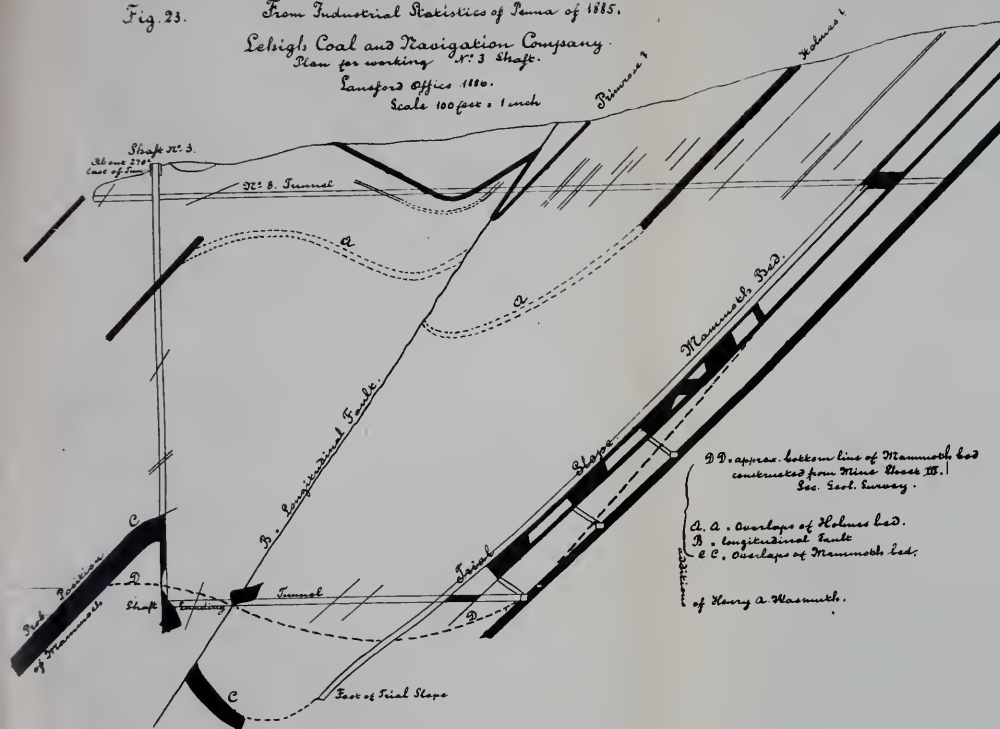 Fig. 23.
From Industrial Statistics of Penna of 1885.
Lehigh Coal and Navigation Company.
Plan for working No. 3 Shaft.
Lansford Office 1886.
Scale 100 feet = 1 inch
Primrose
Holmes
Shaft No. 3.
About 270'
East of Tun
No. 8. Tunnel
A
A
Mammoth Bed.
B. Longitudinal Fault.
Trial Slope.
C
Prob. Position
of Mammoth
D
Shaft Landing
Tunnel
D
C
Foot of Trial Slope
DD = approx. bottom line of Mammoth bed
constructed from Mine Sheet III.
Sec. Geol. Survey.
A. A = Overlaps of Holmes bed.
B = longitudinal Fault
C C = Overlaps of Mammoth bed.
additions
of Henry A. Wasmuth.